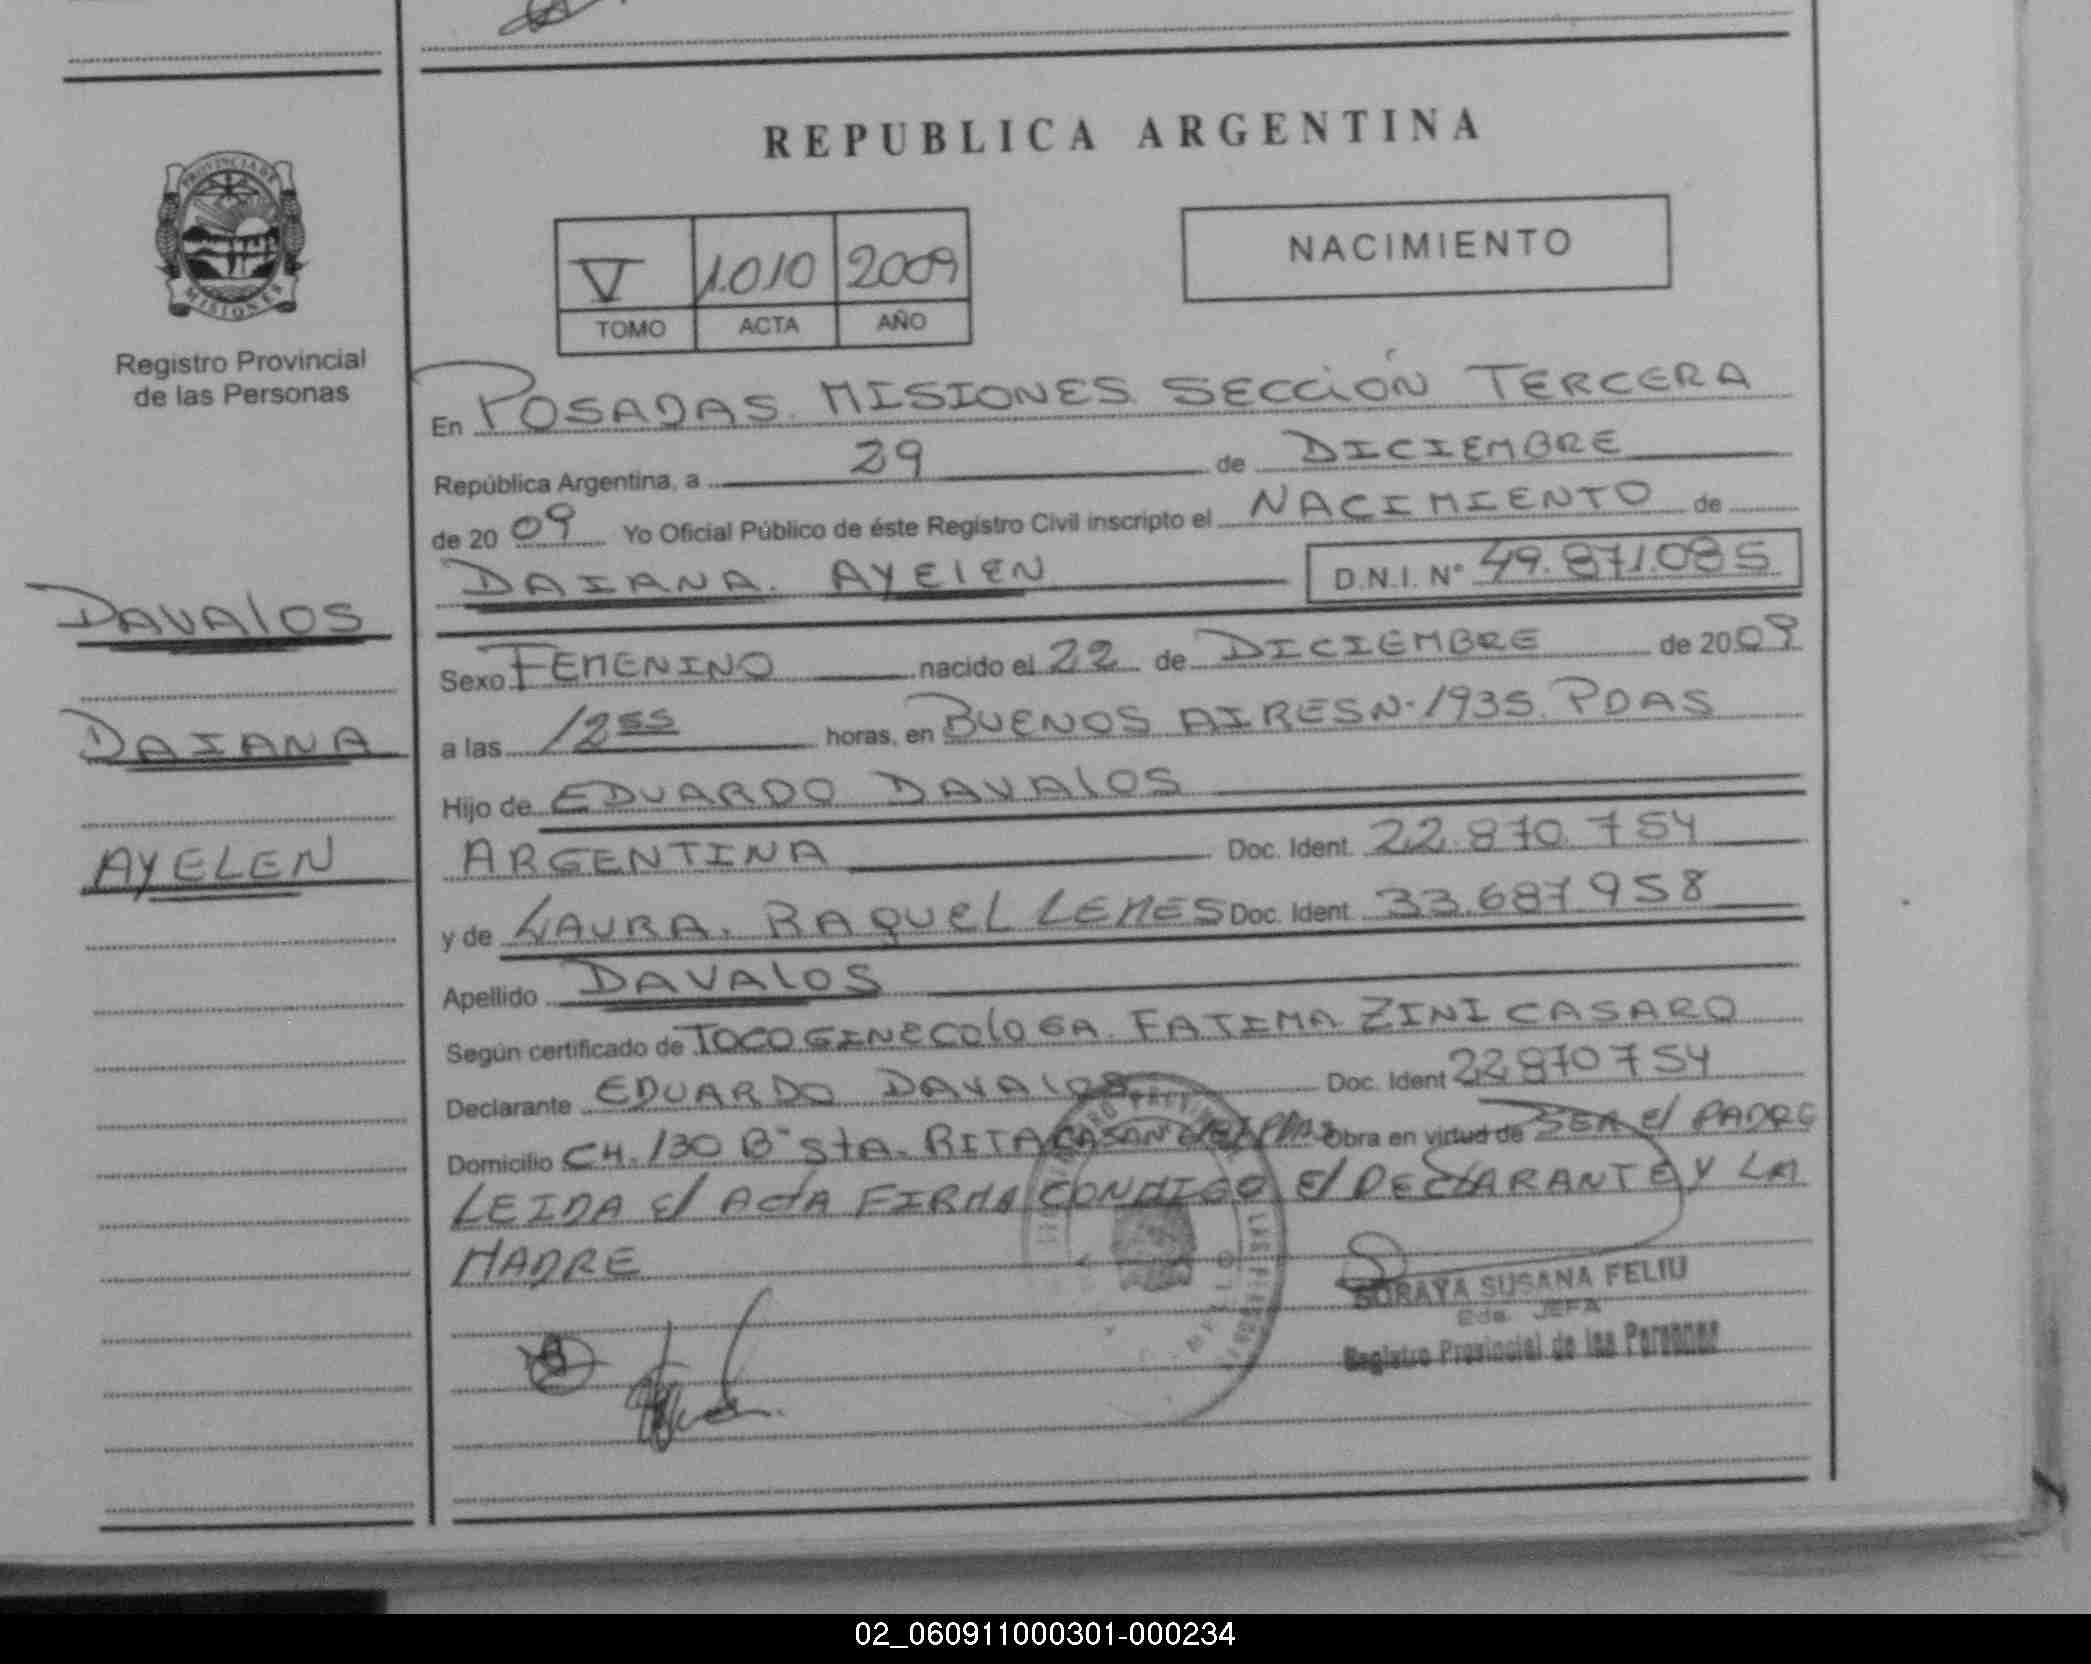 REPUBLICA ARGENTINA
PROVINCIA DE
MISIONES
Registro Provincial
de las Personas
V 1.010 2009
TOMO ACTA AÑO
NACIMIENTO
En POSADAS. MISIONES. SECCIÓN TERCERA
República Argentina, a 29 de DICIEMBRE
de 2009 Yo Oficial Público de éste Registro Civil inscripto el NACIMIENTO de
DAIANA. AYELEN D.N.I. N° 49.871.085
DAVALOS
DAIANA
AYELEN
Sexo FEMENINO nacido el 22 de DICIEMBRE de 2009
a las 12 55 horas, en BUENOS AIRES N. 1935. PDAS
Hijo de EDUARDO DAVALOS
ARGENTINA Doc. Ident. 22.870.754
y de LAURA. RAQUEL LEMES Doc. Ident. 33.687958
Apellido DAVALOS
Según certificado de TOCOGINECOLOGA. FATIMA ZINI CASARO
Declarante EDUARDO DAVALOS Doc. Ident 22870754
Domicilio CH. 130 B° StA. RITA CASA N Obra en virtud de SER El PADRE
LEIDA El ActA FIRMA CONMIGO El DECLARANTE Y LA
MADRE
SORAYA SUSANA FELIU
Eda. JEFA
Registro Provincial de las Personas
02_060911000301-000234